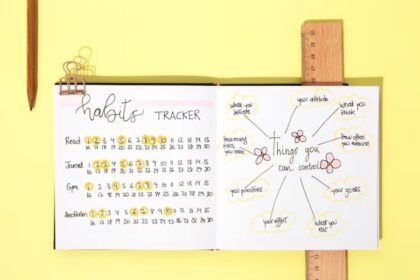 habits
TRACKER
Read 1 2 3 4 5 6 7 8 9 10 11 12 13 14 15
16 17 18 19 20 21 22 23 24 25 26 27 28 29 30
Journal 1 2 3 4 5 6 7 8 9 10 11 12 13 14 15
16 17 18 19 20 21 22 23 24 25 26 27 28 29 30
Gym 1 2 3 4 5 6 7 8 9 10 11 12 13 14 15
16 17 18 19 20 21 22 23 24 25 26 27 28 29 30
1 2 3 4 5 6 7 8 9 10 11 12 13 14 15
16 17 18 19 20 21 22 23 24 25 26 27 28 29 30
what you believe
your attitude
what you think
how many times you
how often you exercise
things you
can control
your priorities
your goals
your effort
what you eat